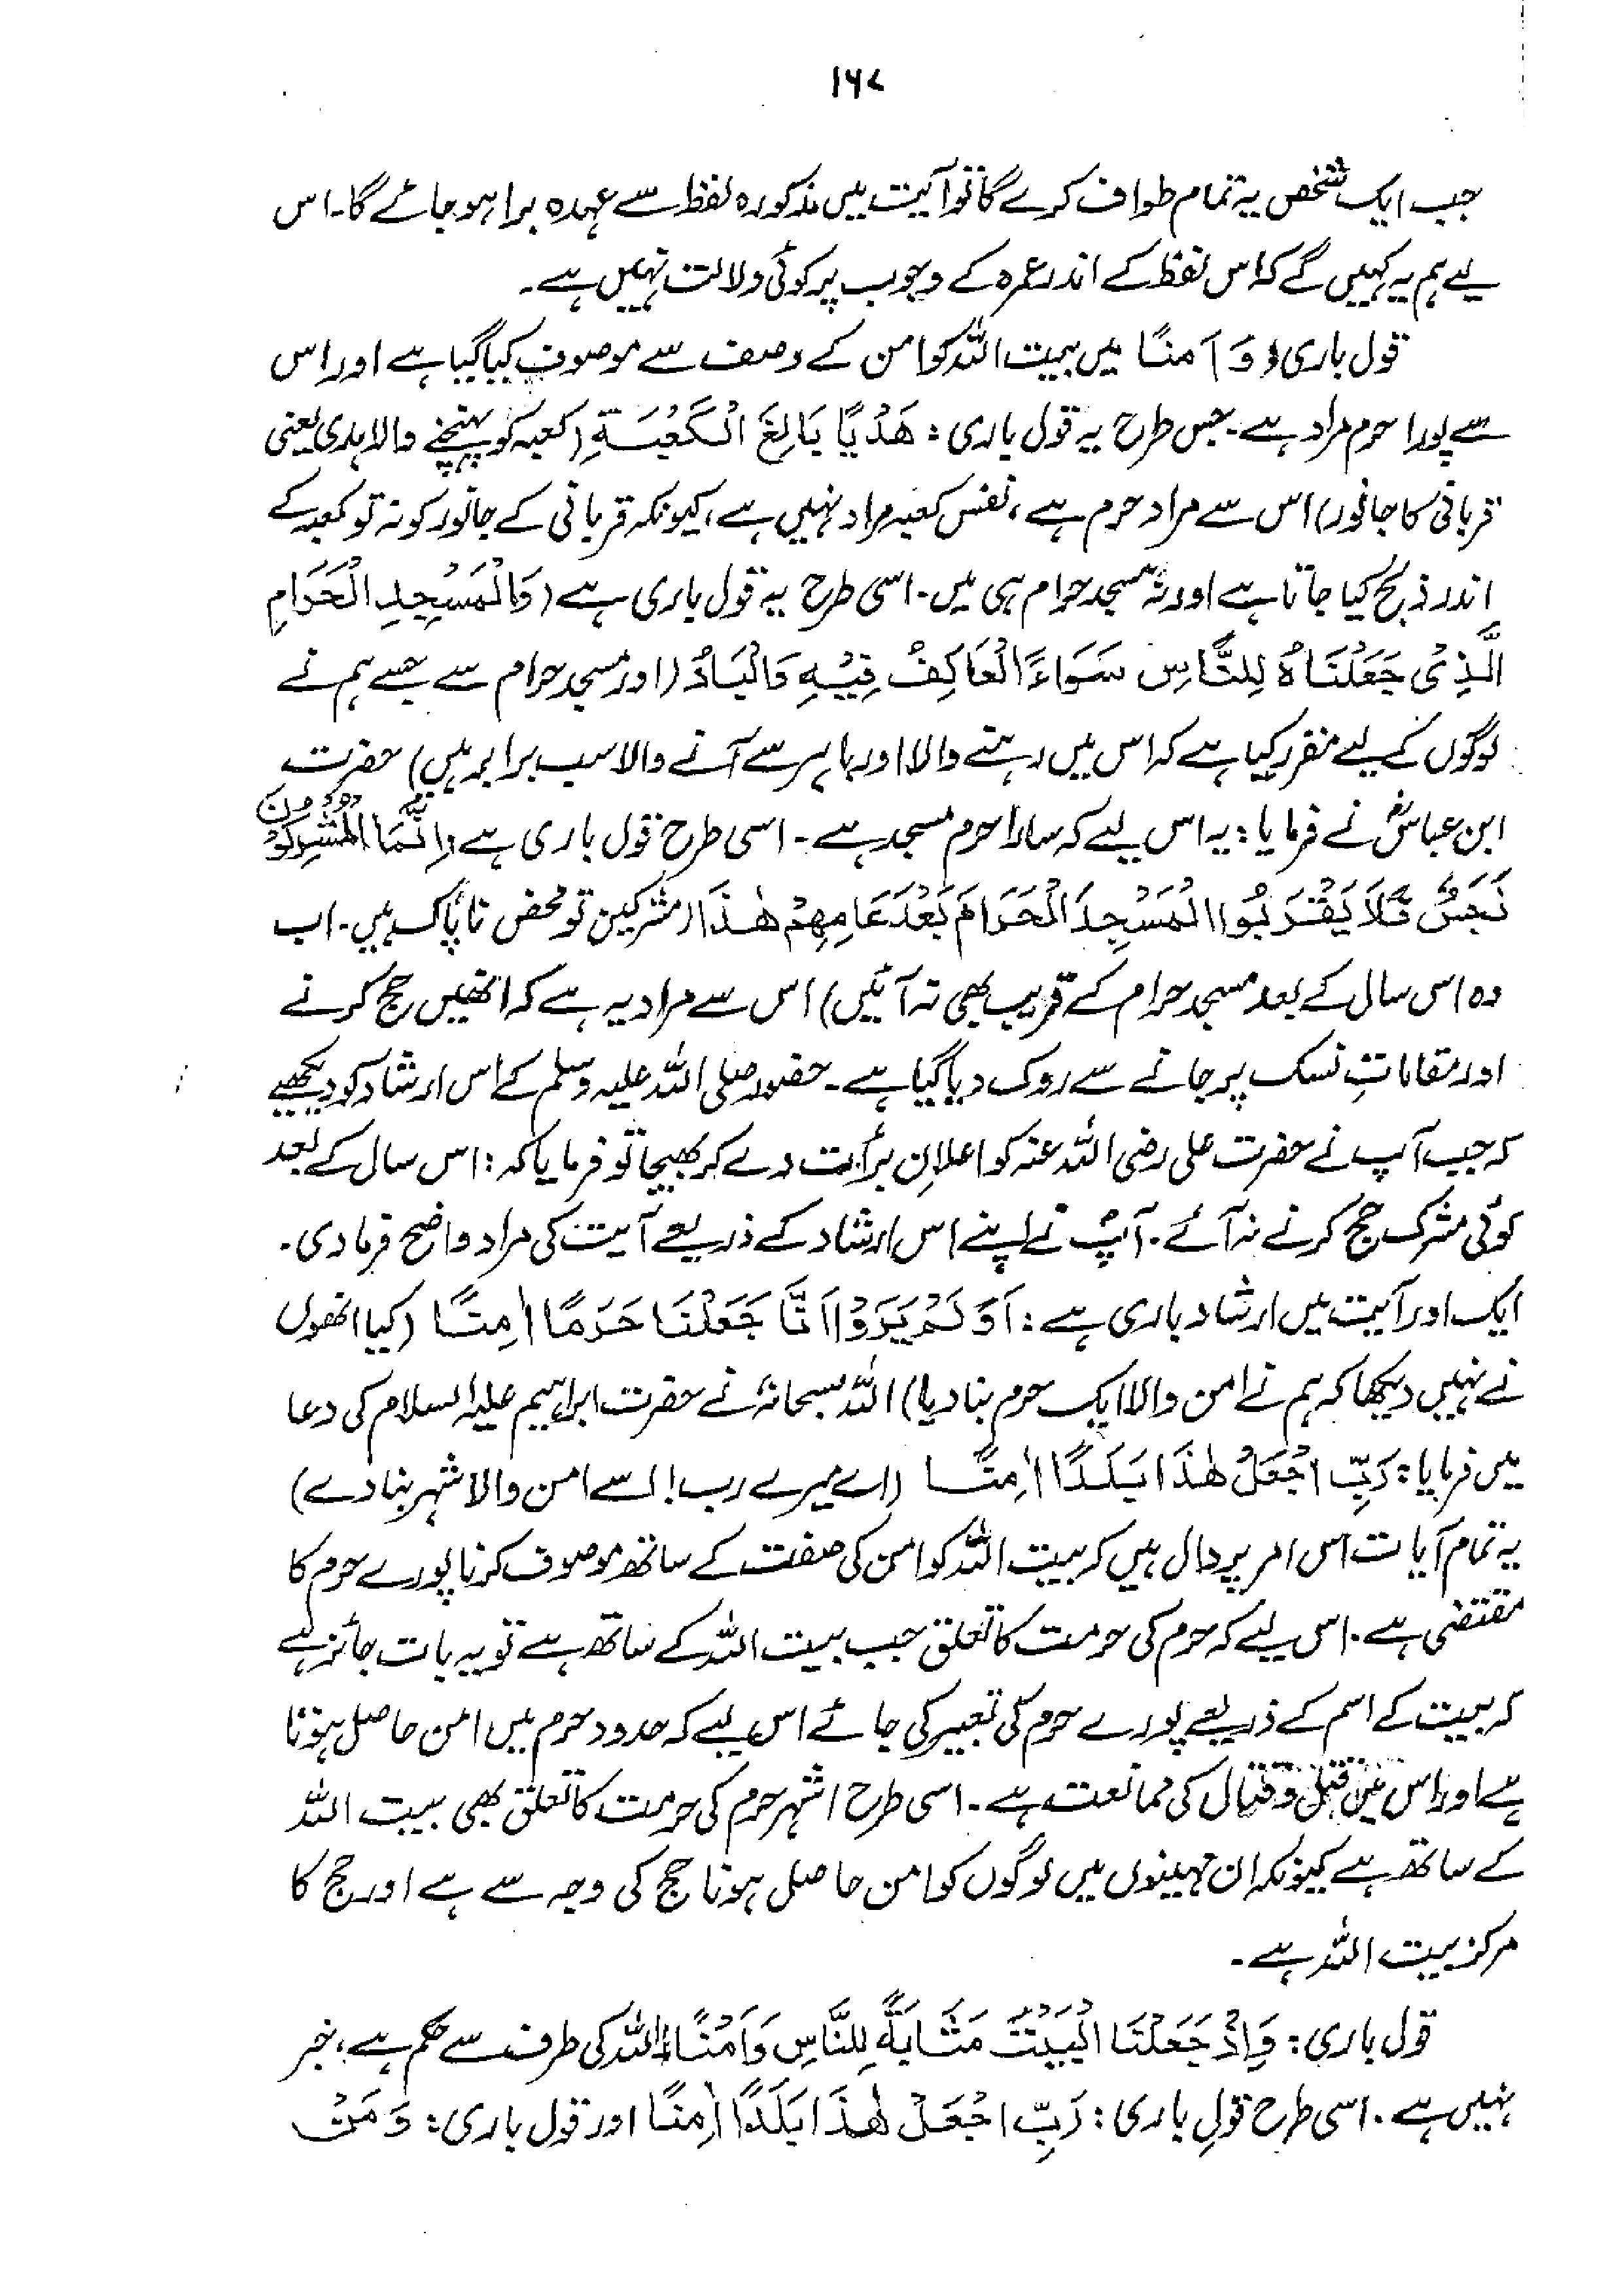 ۱۶۷
جب ایک شخص یہ تمام طواف کرے گا تو آیت میں مذکورہ لفظ سے عہدہ برا ہو جائے گا۔ اس
لیے ہم یہ کہیں گے کہ اس لفظ کے اندر عمرہ کے وجوب پر کوئی دلالت نہیں ہے۔
قول باری (وَ اَمنًا میں بیت اللہ کو امن کے وصف سے موصوف کیا گیا ہے اور اس
سے پورا حرم مراد ہے۔ جس طرح یہ قول باری : هَدْيًا بَالِغَ الْكَعْبَةِ (کعبہ کو پہنچنے والا ہدی یعنی
قربانی کا جانور) اس سے مراد حرم ہے، نفس کعبہ مراد نہیں ہے، کیونکہ قربانی کے جانور کو نہ تو کعبہ کے
اندر ذبح کیا جاتا ہے اور نہ مسجد حرام ہی میں۔ اسی طرح یہ قول باری ہے (وَالْمَسْجِدِ الْحَرَامِ
الَّذِىْ جَعَلْنَاهُ لِلنَّاسِ سَوَاءً الْعَاكِفُ فِيْهِ وَالْبَادُ (اور مسجد حرام سے جسے ہم نے
لوگوں کے لیے مقرر کیا ہے کہ اس میں رہنے والا اور باہر سے آنے والا سب برابر ہیں) حضرت
ابن عباسؓ نے فرمایا : یہ اس لیے کہ سارا حرم مسجد ہے۔ اسی طرح قول باری ہے (اِنَّمَا الْمُشْرِكُوْنَ
نَجَسٌ فَلَا يَقْرَبُوا الْمَسْجِدَ الْحَرَامَ بَعْدَ عَامِهِمْ هٰذَا (مشرکین تو محض ناپاک ہیں۔ اب
وہ اس سال کے بعد مسجد حرام کے قریب بھی نہ آئیں) اس سے مراد یہ ہے کہ انھیں حج کرنے
اور مقاماتِ نسک پر جانے سے روک دیا گیا ہے۔ حضور صلی اللہ علیہ وسلم کے اس ارشاد کو دیکھیے
کہ جب آپ نے حضرت علی رضی اللہ عنہ کو اعلانِ برأت دے کر بھیجا تو فرمایا کہ : اس سال کے بعد
کوئی مشرک حج کرنے نہ آئے۔ آپؐ نے اپنے اس ارشاد کے ذریعے آیت کی مراد واضح فرما دی۔
ایک اور آیت میں ارشاد باری ہے : اَوَ لَمْ يَرَوْا اَنَّا جَعَلْنَا حَرَمًا اٰمِنًا (کیا انھوں
نے نہیں دیکھا کہ ہم نے امن والا ایک حرم بنا دیا) اللہ سبحانہٗ نے حضرت ابراہیم علیہ السلام کی دعا
میں فرمایا : رَبِّ اجْعَلْ هٰذَا بَلَدًا اٰمِنًا (اے میرے رب! اسے امن والا شہر بنا دے)
یہ تمام آیات اس امر پر دال ہیں کہ بیت اللہ کو امن کی صفت کے ساتھ موصوف کرنا پورے حرم کا
مقتضی ہے۔ اس لیے کہ حرم کی حرمت کا تعلق جب بیت اللہ کے ساتھ ہے تو یہ بات جائز ہے
کہ بیت کے اسم کے ذریعے پورے حرم کی تعبیر کی جائے اس لیے کہ حدود حرم میں امن حاصل ہوتا
ہے اور اس میں قتل و قتال کی ممانعت ہے۔ اسی طرح اشہر حرم کی حرمت کا تعلق بھی بیت اللہ
کے ساتھ ہے کیونکہ ان مہینوں میں لوگوں کو امن حاصل ہونا حج کی وجہ سے ہے اور حج کا
مرکز بیت اللہ ہے۔
قول باری : وَاِذْ جَعَلْنَا الْبَيْتَ مَثَابَةً لِلنَّاسِ وَاَمْنًا اللہ کی طرف سے حکم ہے، خبر
نہیں ہے۔ اسی طرح قولِ باری : رَبِّ اجْعَلْ هٰذَا بَلَدًا اٰمِنًا اور قول باری : وَ مَنْ